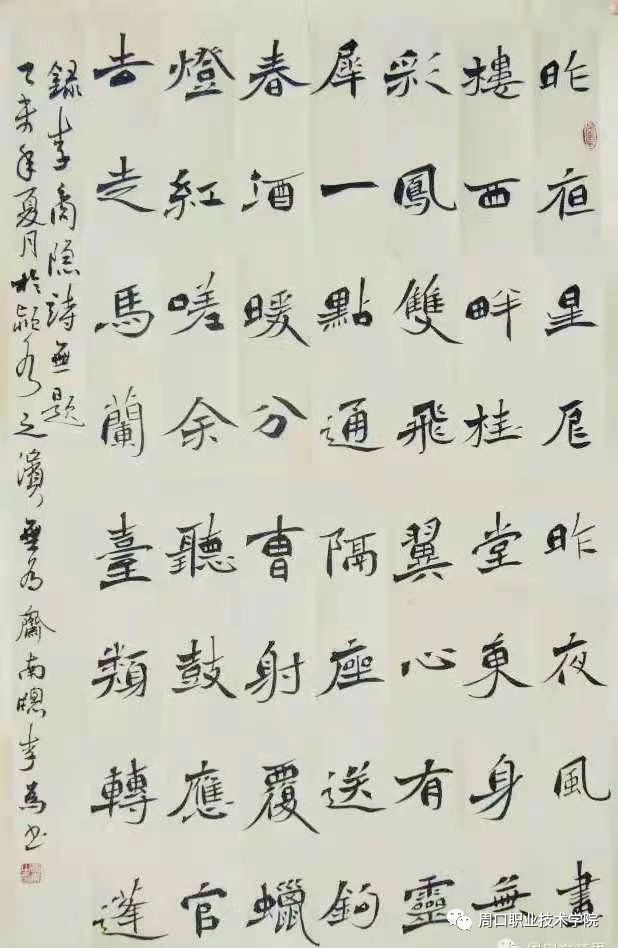 昨夜星辰昨夜風畫
樓西畔桂堂東身無
彩鳳雙飛翼心有靈
犀一點通隔座送鉤
春酒暖分曹射覆蠟
燈紅嗟余聽鼓應官
去走馬蘭臺類轉蓬
錄李商隱詩無題
乙未年夏月於潁水之濱無為齋南牕李為书
周口职业技术学院